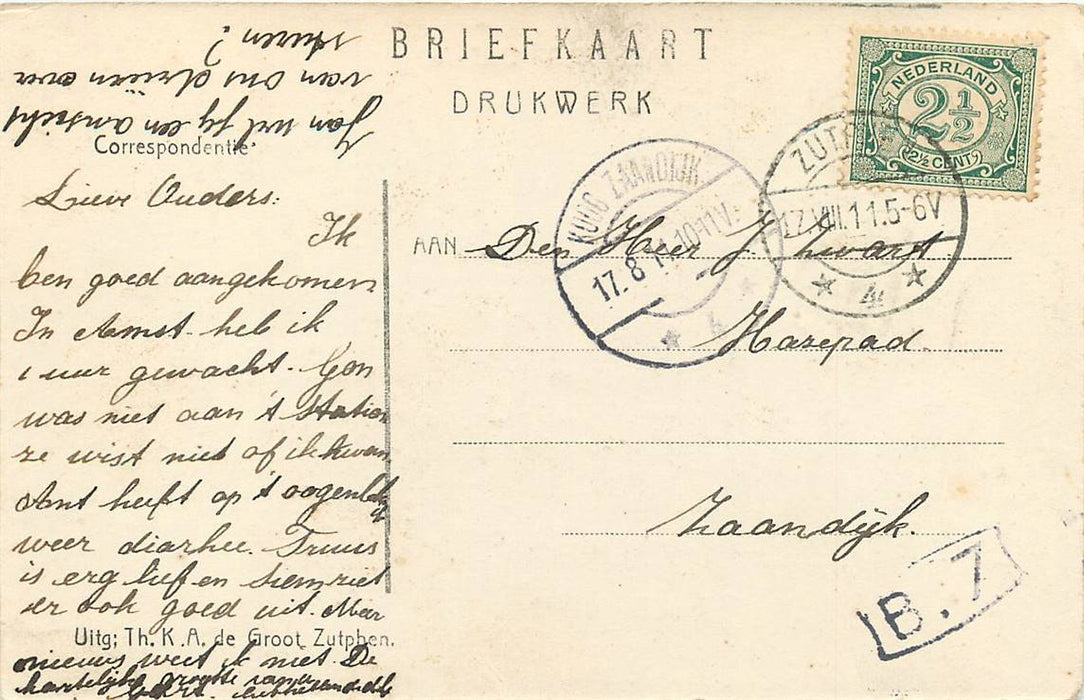 BRIEFKAART
DRUKWERK
Jan wil jij een ansicht
van ons drieën over
sturen?
Correspondentie
Lieve Ouders:
Ik
ben goed aangekomen.
In Amst. heb ik
1 uur gewacht. Gon
was niet aan 't Station
ze wist niet of ik kwam
Ant heeft op 't oogenblik
weer diarhee. Truus
is erg lief en Siem ziet
er ook goed uit. Meer
Uitg; Th. K. A. de Groot, Zutphen.
nieuws weet ik niet. De
hartelijke groeten van
NEDERLAND
2½
2½ CENT
ZUTPHEN
17.VIII.11.5-6V
4
KOOG ZAANDIJK
17.8.1 10-11V.
4
AAN Den Heer J. Zwart
Hazepad.
Zaandijk.
B.7